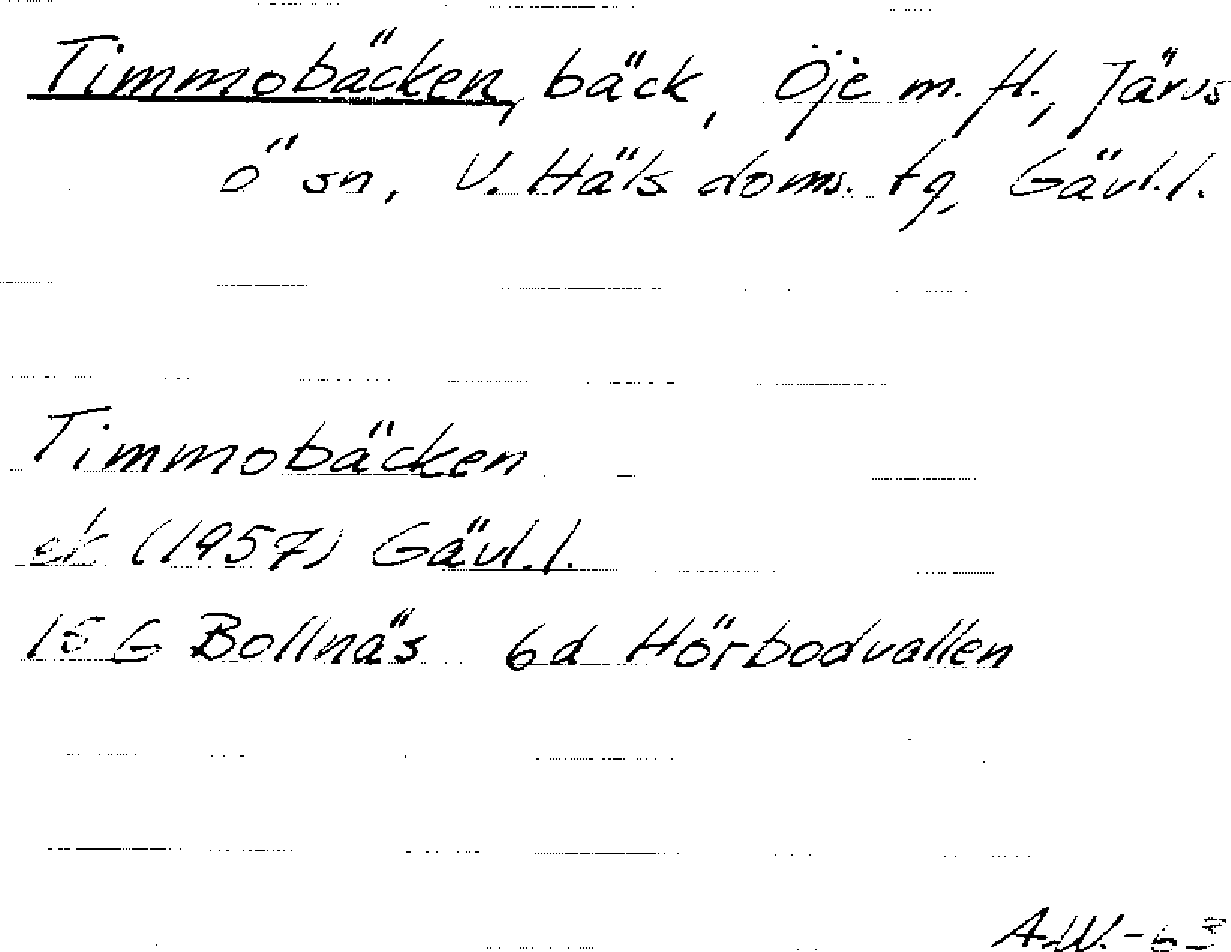 Timmobäcken, bäck, Öje m. fl., Järvs
ö sn, V. Häls doms. tg, Gävl.l.
Timmobäcken
ek (1957) Gävl.l.
15 G Bollnäs 6d Hörbodvallen
A.W.-63